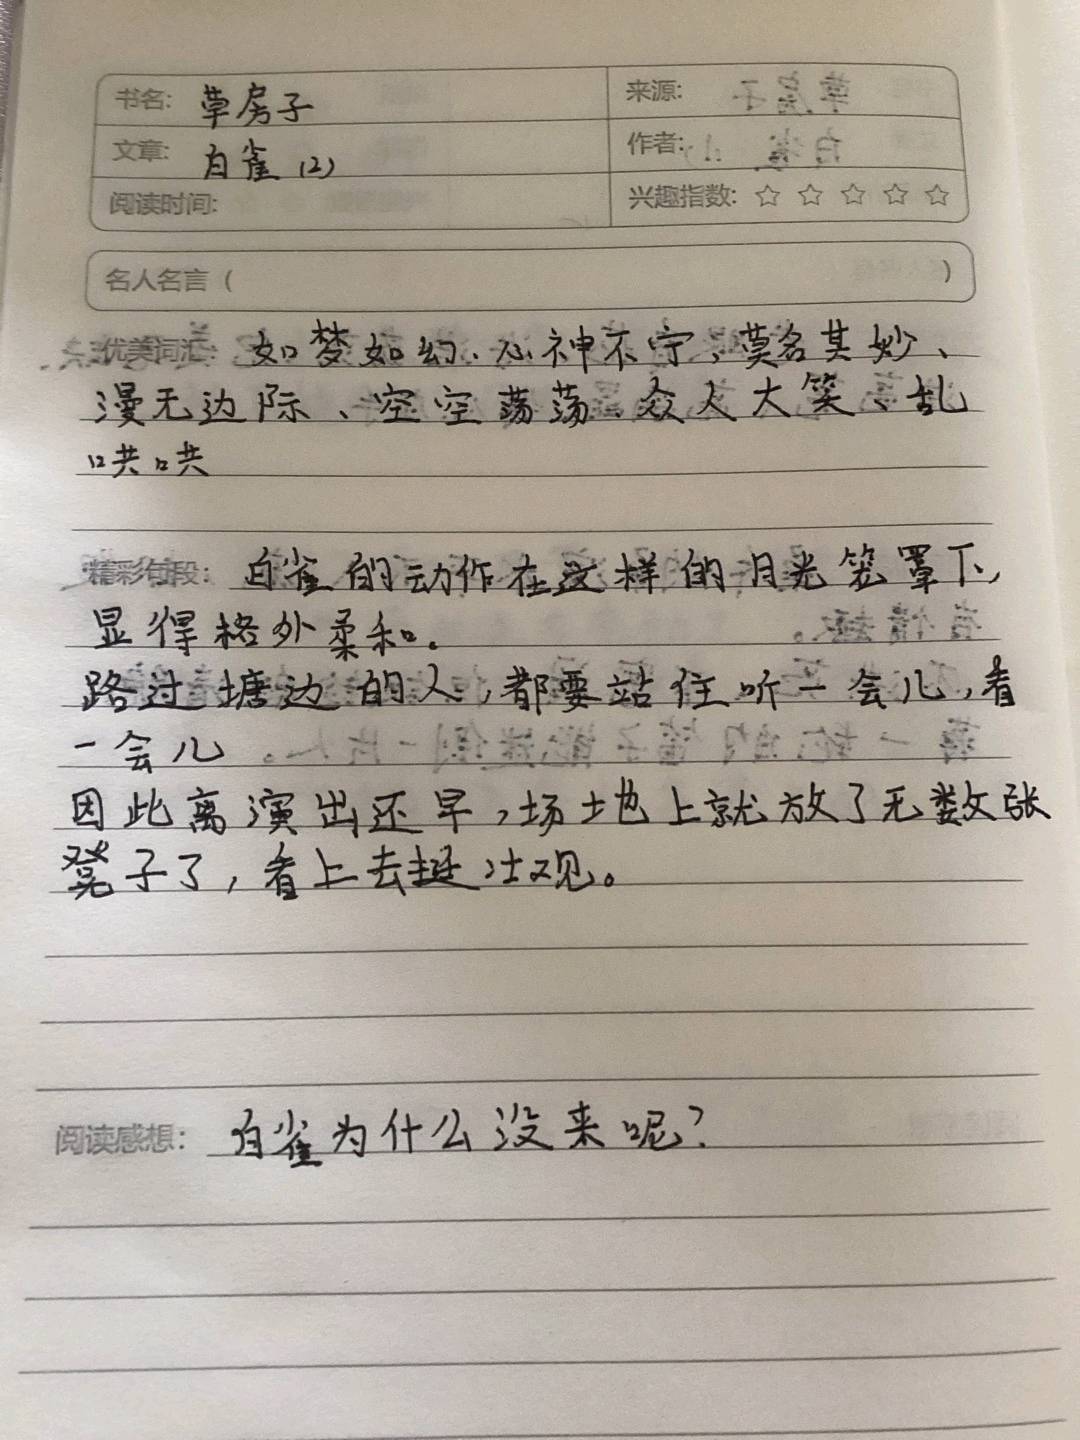 书名: 草房子 来源:
文章: 白雀(2) 作者:
阅读时间: 兴趣指数: ☆ ☆ ☆ ☆ ☆
名人名言 ( )
优美词汇: 如梦如幻、心神不宁、莫名其妙、
漫无边际、空空荡荡、众人大笑、乱
哄哄
精彩句段: 白雀的动作在这样的月光笼罩下,
显得格外柔和。
路过塘边的人,都要站住听一会儿,看
一会儿
因此离演出还早,场地上就放了无数张
凳子了,看上去挺壮观。
阅读感想: 白雀为什么没来呢?